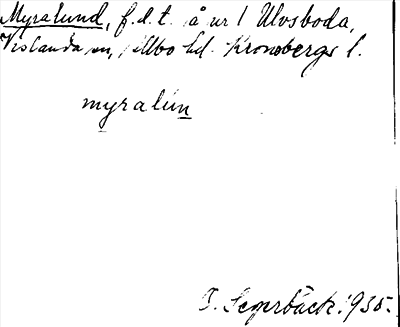 Myralund, f.d.t. å nr 1 Ulvsboda,
Vislanda sn, Allbo hd. Kronobergs l.
myralun
T. Segerbäck. 1935.